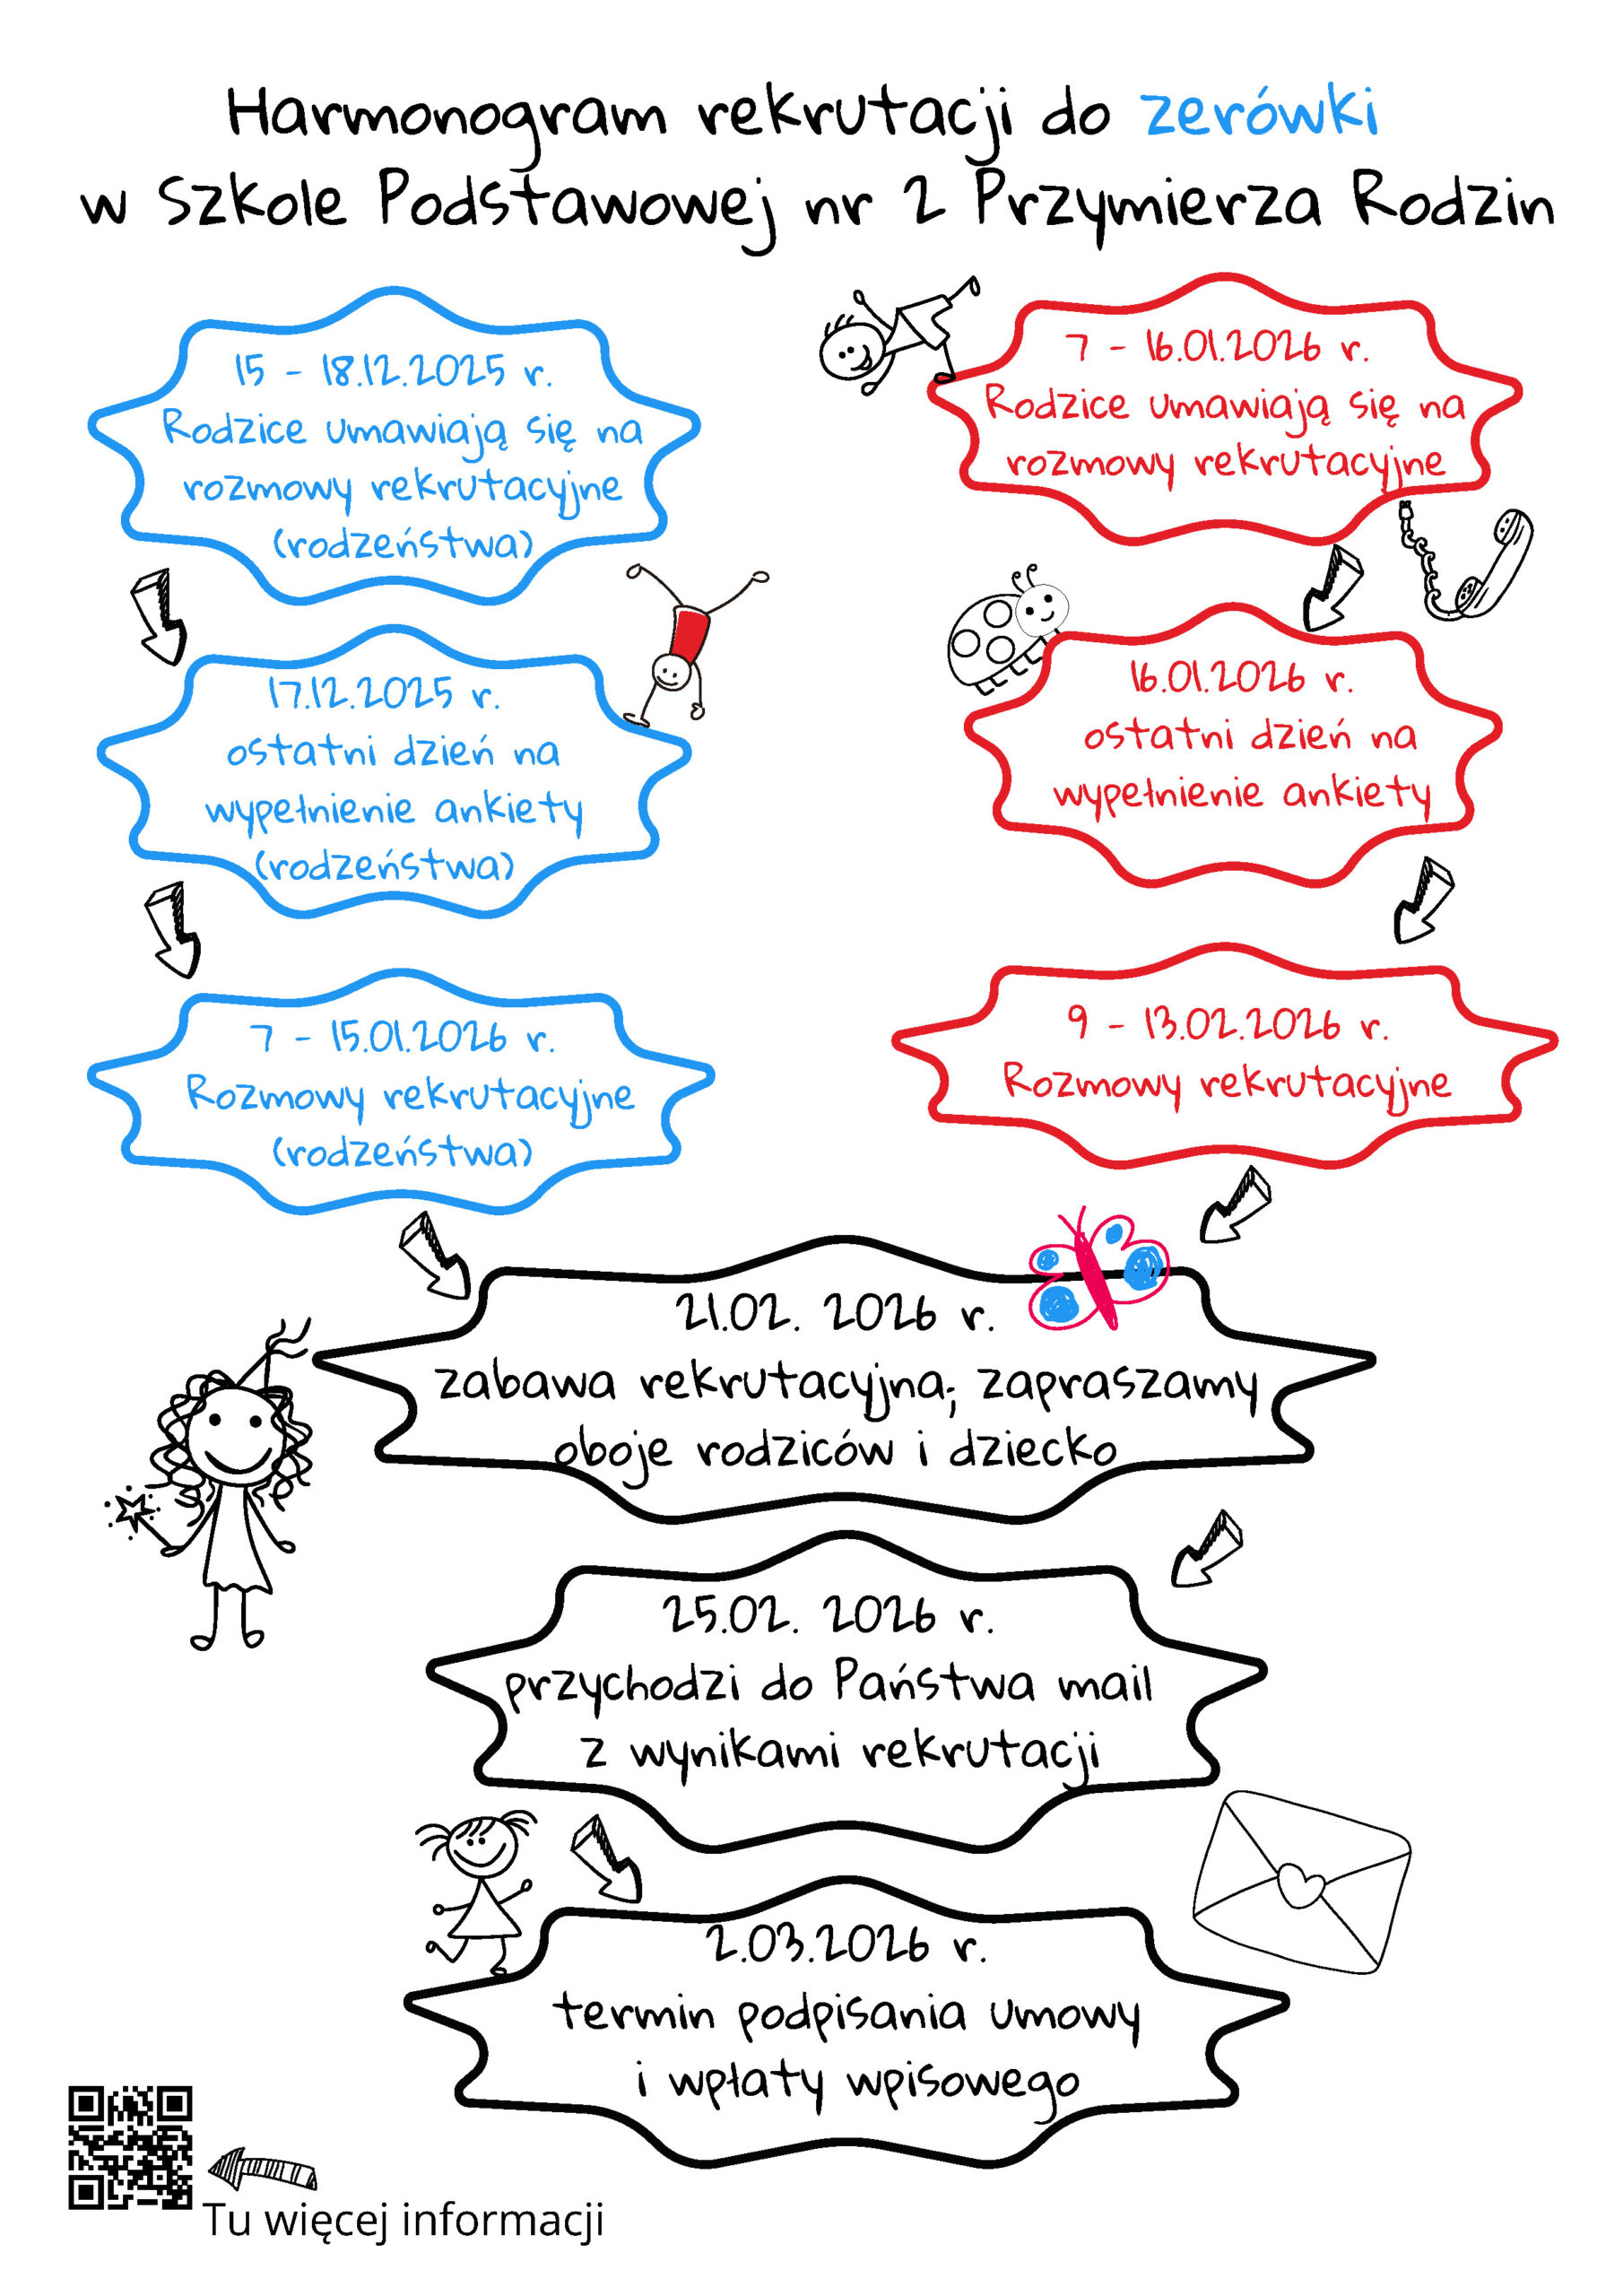 Harmonogram rekrutacji do zerówki
w Szkole Podstawowej nr 2 Przymierza Rodzin
15 - 18.12.2025 r.
Rodzice umawiają się na
rozmowy rekrutacyjne
(rodzeństwa)
17.12.2025 r.
ostatni dzień na
wypełnienie ankiety
(rodzeństwa)
7 - 15.01.2026 r.
Rozmowy rekrutacyjne
(rodzeństwa)
7 - 16.01.2026 r.
Rodzice umawiają się na
rozmowy rekrutacyjne
16.01.2026 r.
ostatni dzień na
wypełnienie ankiety
9 - 13.02.2026 r.
Rozmowy rekrutacyjne
21.02. 2026 r.
zabawa rekrutacyjna; zapraszamy
oboje rodziców i dziecko
25.02. 2026 r.
przychodzi do Państwa mail
z wynikami rekrutacji
2.03.2026 r.
termin podpisania umowy
i wpłaty wpisowego
Tu więcej informacji